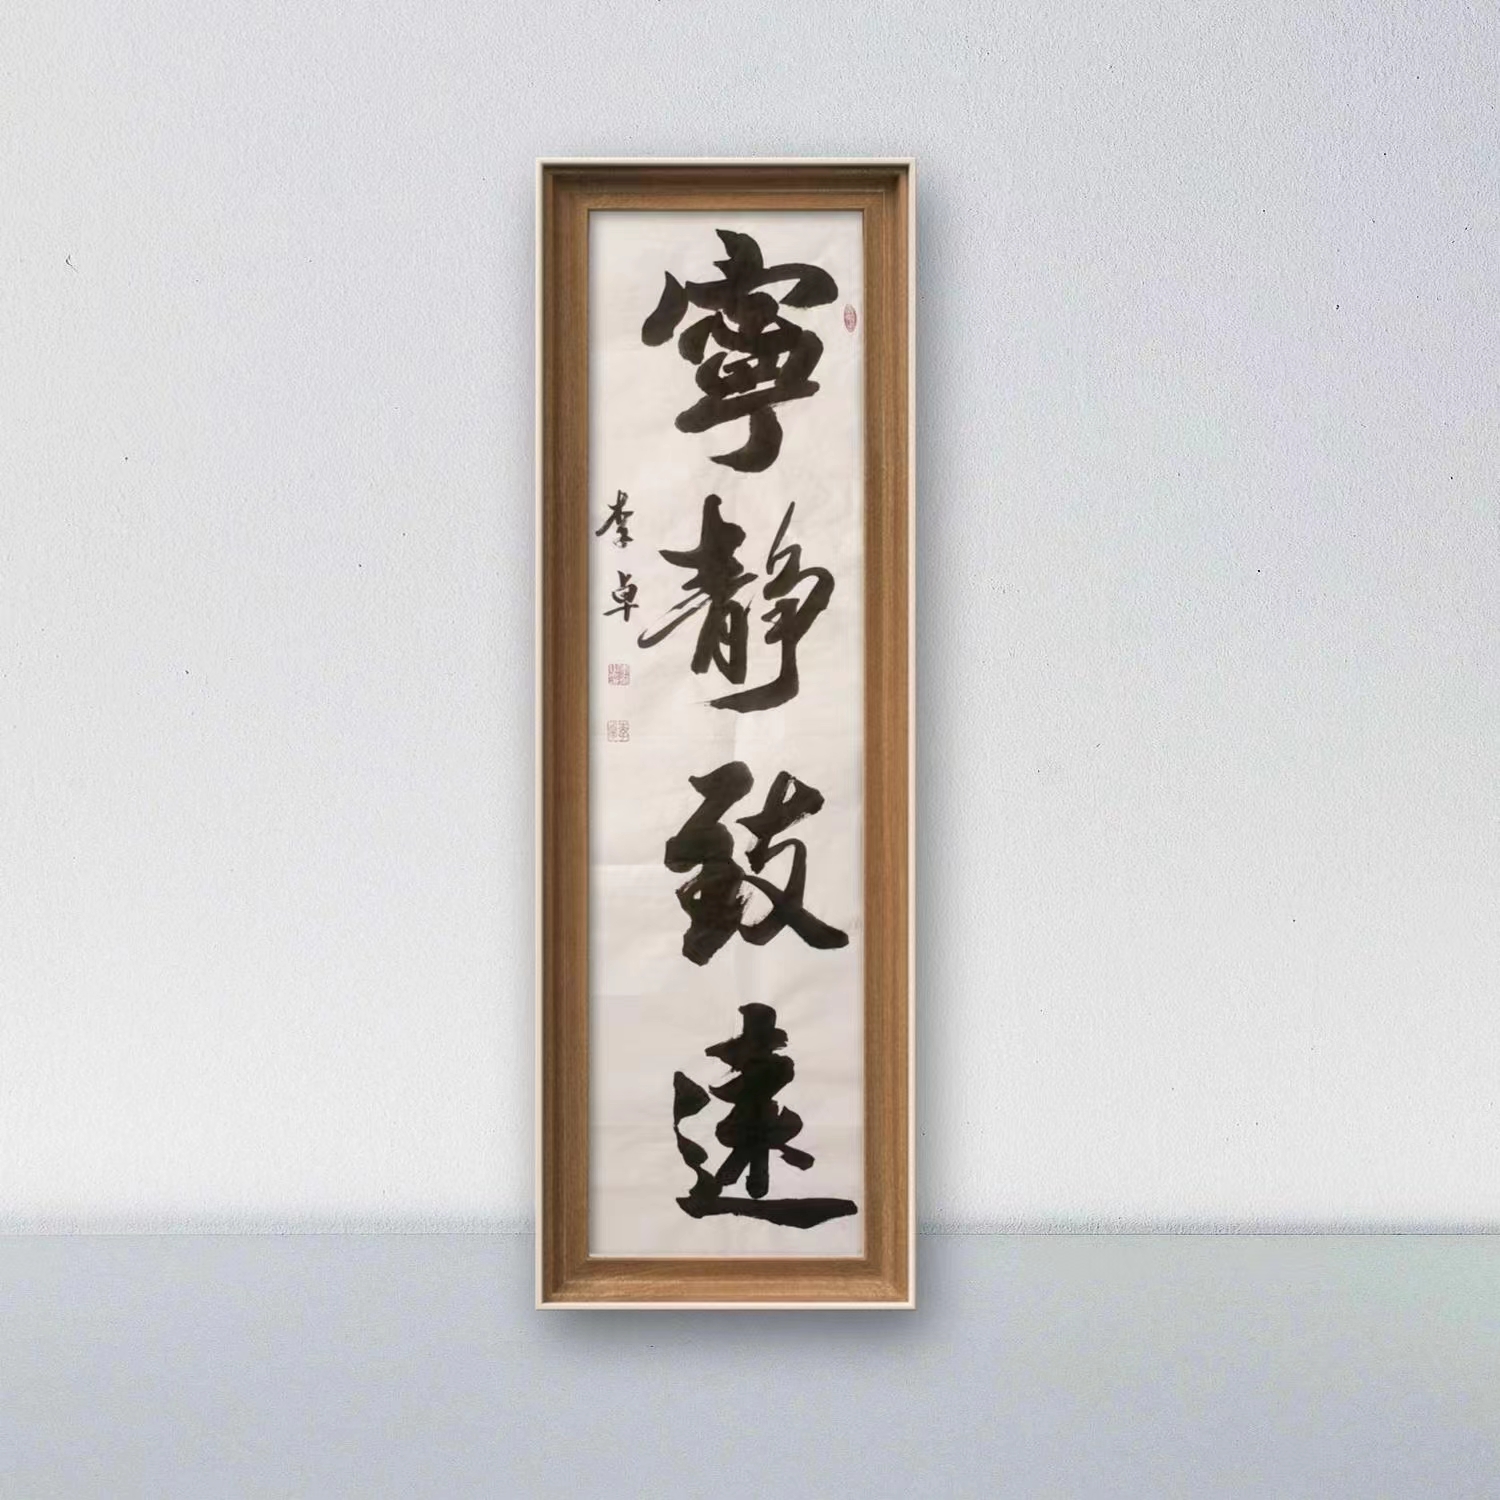 寧靜致遠
李卓